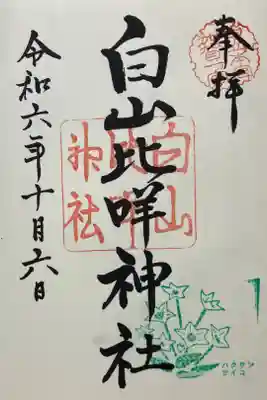 奉拝
白山比咩神社
令和六年十月六日
白山
比咩
神社
ハクサン
サイコ